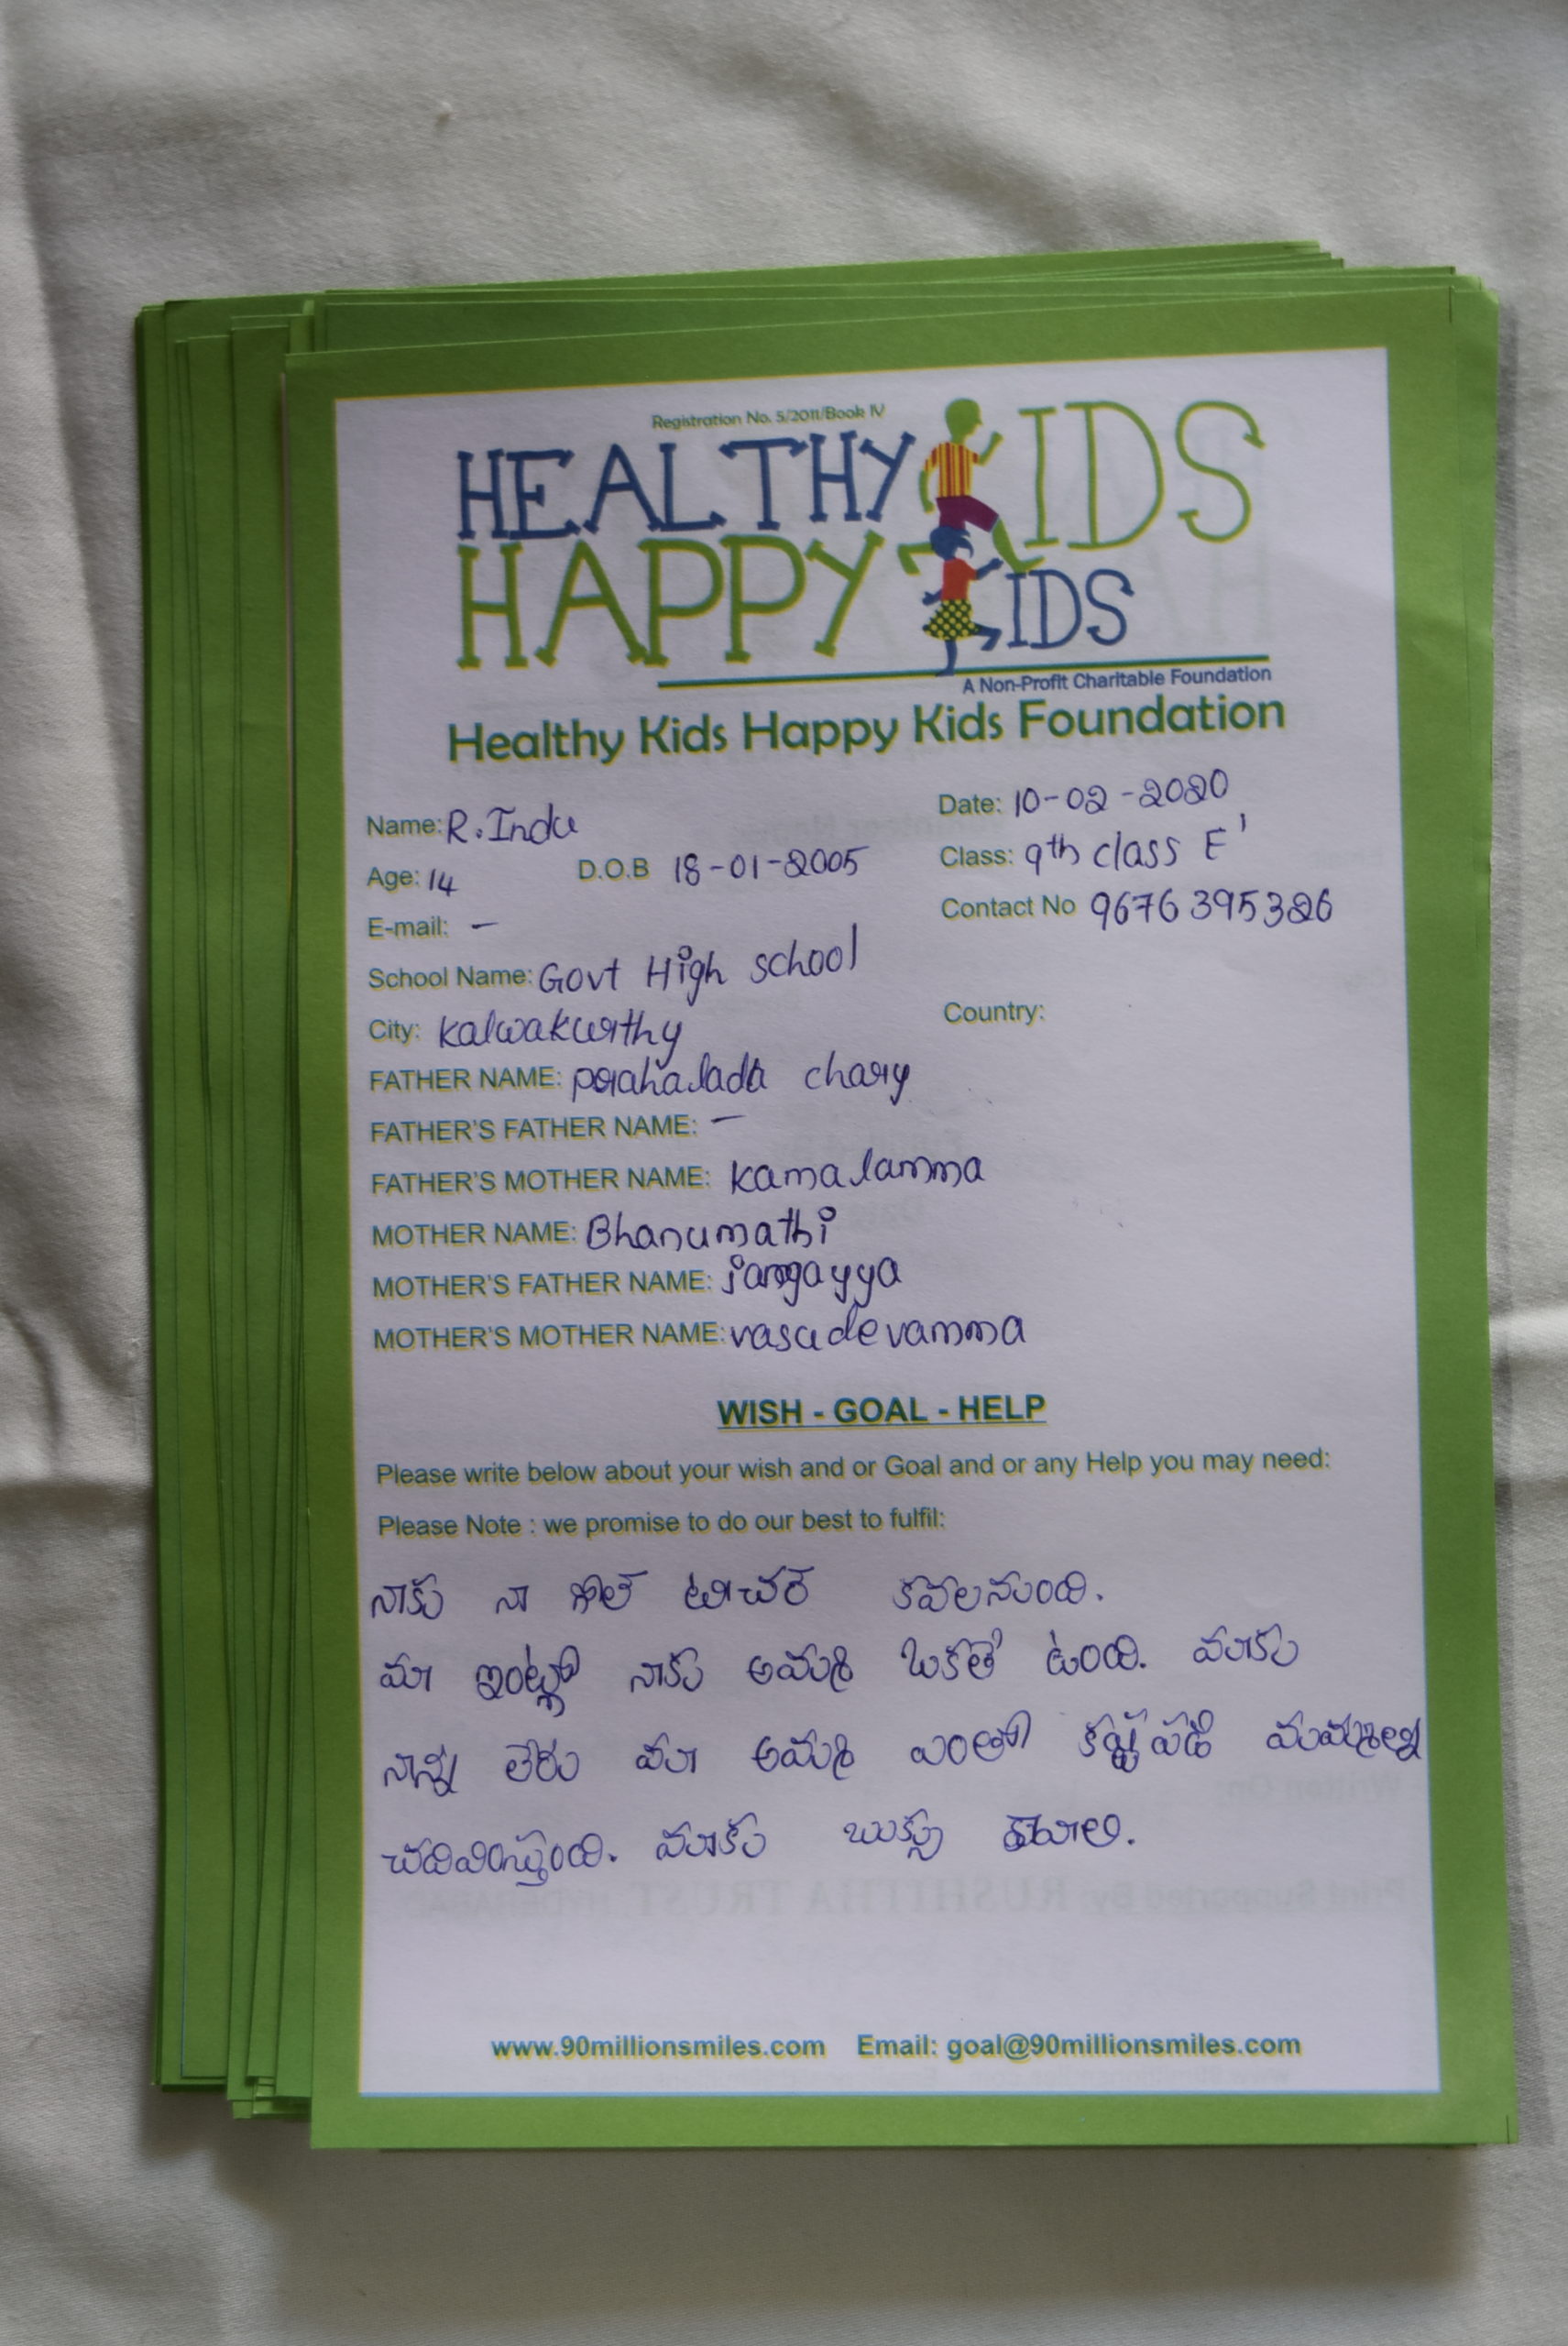 Registration No. 5/2011/Book IV
HEALTHY KIDS
HAPPY KIDS
A Non-Profit Charitable Foundation
Healthy Kids Happy Kids Foundation
Name: R. Indu
Date: 10-02-2020
Age: 14 D.O.B 18-01-2005
Class: 9th class E'
E-mail: –
Contact No 9676395326
School Name: Govt High school
City: kalwakurthy
Country:
FATHER NAME: prahalada chary
FATHER'S FATHER NAME: –
FATHER'S MOTHER NAME: kamalamma
MOTHER NAME: Bhanumathi
MOTHER'S FATHER NAME: jangayya
MOTHER'S MOTHER NAME: vasudevamma
WISH - GOAL - HELP
Please write below about your wish and or Goal and or any Help you may need:
Please Note : we promise to do our best to fulfil:
నాకు నా గోల్ టీచర్ కవలనుంది.
మా ఇంట్లో నాకు అమ్మ ఒకతే ఉంది. మాకు
నాన్న లేరు మా అమ్మ ఎంతో కష్టపడి మమ్మల్ని
చదివిస్తుంది. మాకు బుక్స్ కావాలి.
www.90millionsmiles.com Email: goal@90millionsmiles.com